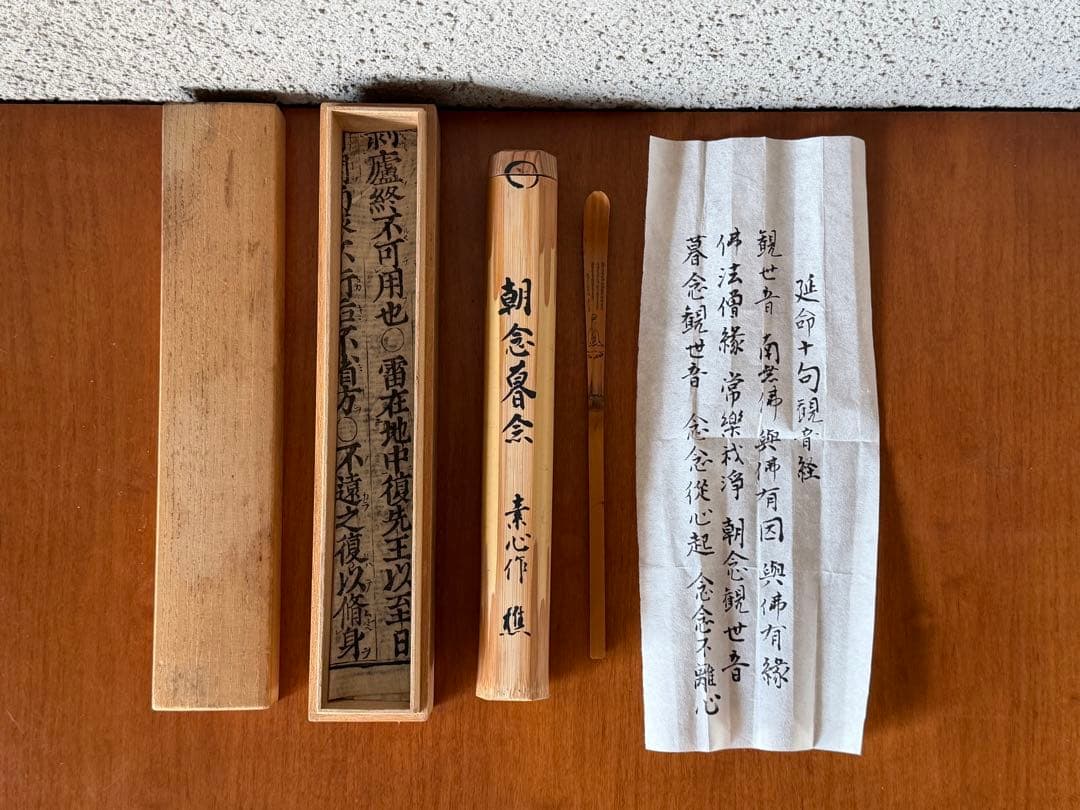 剥廬終不可用也〇雷在地中復先王以至日
不遠之復以脩身
朝念暮念
素心作
樵
延命十句観音経
観世音 南無佛 與佛有因 與佛有縁
佛法僧縁 常樂我淨 朝念観世音
暮念観世音 念念從心起 念念不離心